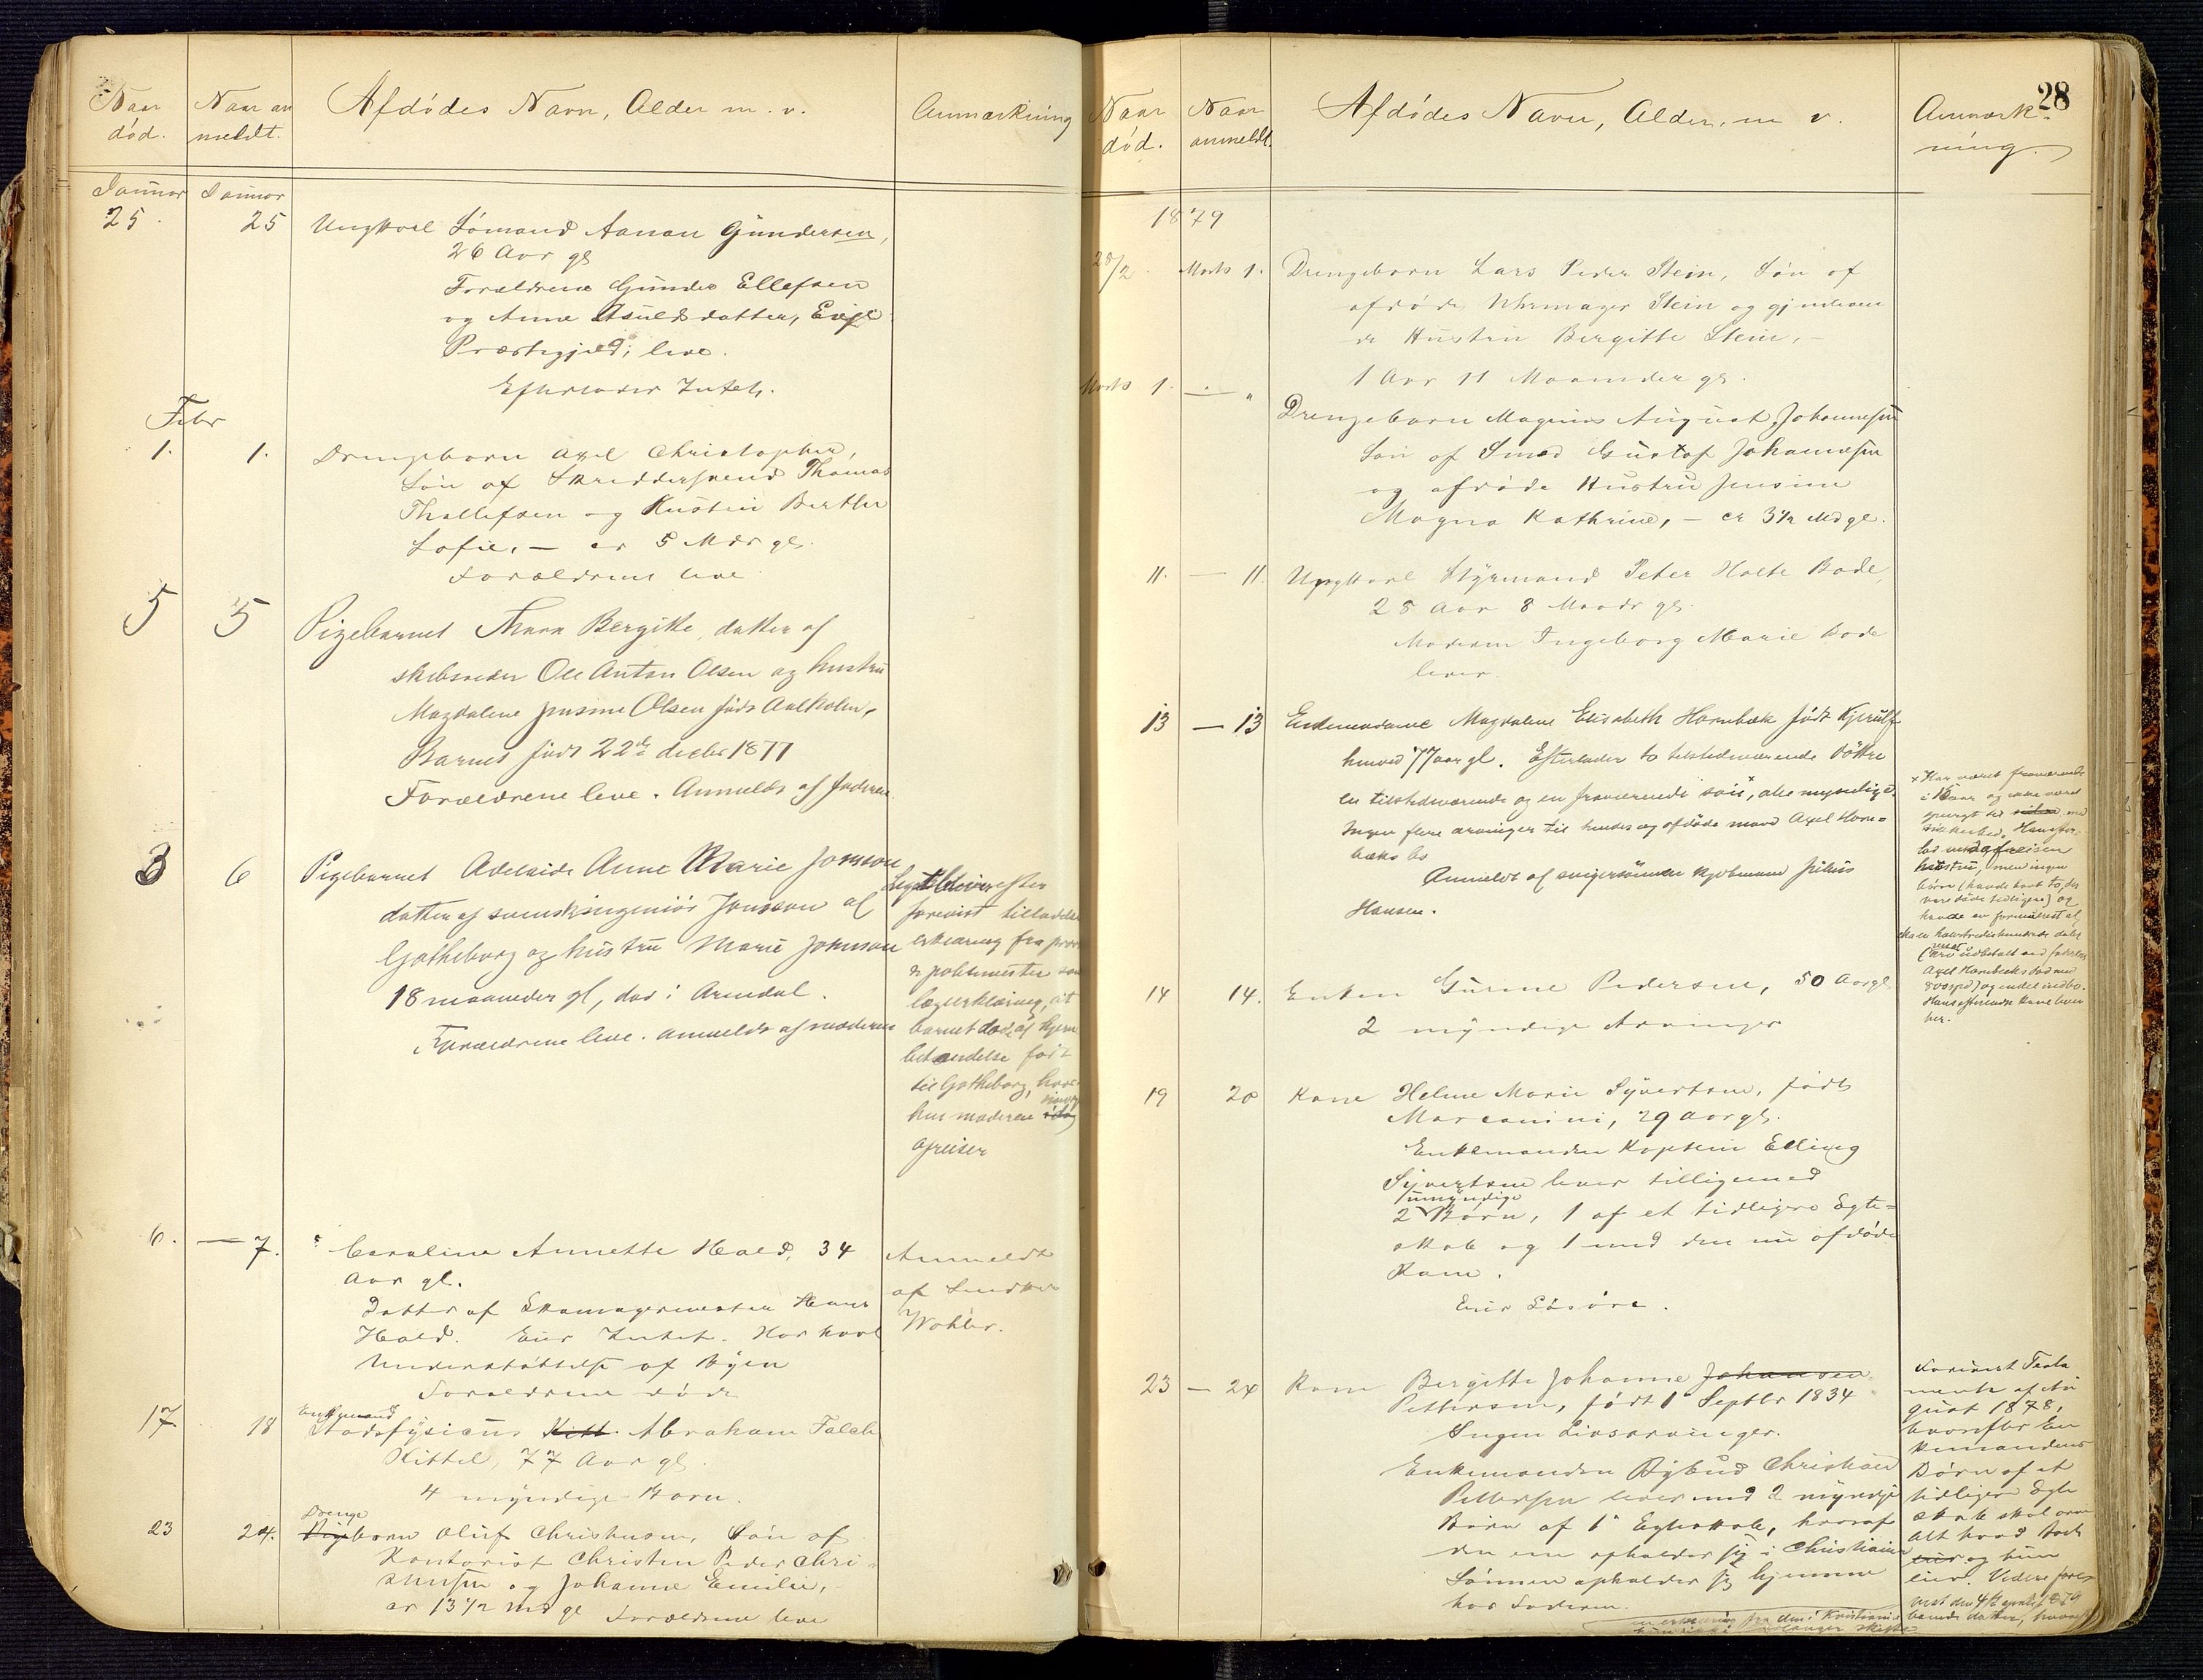 Naar død.
Naar an meldt.
Afdødes Navn, Alder m. v.
Anmærkning
Januar
Januar
25.
25
Ungkarl Sømand Aanon Gundersen,
26 Aar gl
Forældrene Gunder Ellefsen
og Anne Asulds datter, Eidje
Præstegjeld; leve.
Efterlader Intet.
Febr
1.
1.
Drengebarn Axel Christopher,
Søn af Skreddersvend Thomas
Thellefsen og Hustru Berthe
Sofie, — er 5 Mdr gl.
Forældrene leve
5
5
Pigebarnet Thora Bergitte, datter af
skibsreder Ole Anton Olsen og hustru
Magdalene Jensine Olsen født Aalholm,
Barnet født 22de decbr 1877
Forældrene leve. Anmeldt af faderen
3
6
Pigebarnet Adelaide Anne Marie Jonsson
datter af svensk ingeniør Jonsson af
Gøtheborg og hustru Marie Jonsson
18 maaneder gl, død i Arendal.
Forældrene leve. Anmeldt af moderen
efter
forevist tilladelse
erklæring fra
politimester
lægeerklæring, at
barnet døde af hjerne
betændelse ført
til Gøtheborg, hvor
hen moderen
afreiser
6.
— 7.
Caroline Annette Hald, 34
Aar gl.
Datter af Skomagermester Hans
Hald. Eier Intet. Har havt
Understøttelse af Byen
Forældrene døde
Anmeldt
af Snedker
Wøhler.
17
18
Enkemand
Stadsfysicus Kitt. Abraham Falch
Kittel, 77 Aar gl.
4 myndige Børn.
23
24.
Drenge
Pigebarn Oluf Christensen, Søn af
Kontorist Christen Peder Chri-
stensen og Johanne Emilie,
er 13 1/2 Md gl Forældrene leve
28
Naar død.
Naar anmeldt.
Afdødes Navn, Alder, m v.
Anmærk-
ning.
1879
28/2.
Marts 1.
Drengebarn Lars Peder Stein, Søn af
afdøde Uhrmager Stein og gjenleven
de Hustru Bergitte Stein, —
1 Aar 11 Maaneder gl.
Marts 1.
— "
Drengebarn Magnus August Johannesen
Søn af Smed Gustaf Johannesen
og afdøde Hustru Jensine
Magna Kathrine, — er 3 1/2 Md gl.
11.
— 11.
Ungkarl Styrmand Peter Holte Bode,
28 Aar 8 Maadr gl.
Moderen Ingeborg Marie Bode
lever.
13
— 13
Enkemadame Magdalene Elisabeth Hornbæk født Kjerulf
henved 77 aar gl. Efterlader to tilstedeværende døttre
en tilstedeværende og en fraværende søn, alle myndige.
Ingen flere arvinger til hendes og afdøde mand Axel Horn=
bæks bo
Anmeldt af svigersønnen kjøbmand Julius
Hansen.
x Har været fraværende
i 15 aar og ikke været
spurgt til siden med
sikkerhed. Han
lod ved afreisen
hustru, men ingen
børn (havde havt to, der
vare døde tidligere) og
havde en formuerest af
udbetalt ved faderen
Axel Hornbecks død med
800 spd) og endel indbo.
Hans efterladte kone lever
her.
14
14.
Enken Gunne Pedersen, 50 Aar gl
2 myndige Arvinger
19
20
Kone Helene Marie Syvertsen, født
Marcanini, 29 Aar gl.
Enkemanden Kaptein Elling
Syvertsen lever tilligemed
umyndige
2 Børn, 1 af et tidligere Egte=
skab og 1 med den nu afdøde
Kone.
Eier Løsøre.
23
— 24
Kone Bergitte Johanne Johansen
Pettersen, født 1 Septbr 1834
Ingen Livsarvinger.
Enkemanden Bybud Christian
Pettersen lever med 2 myndige
Børn af 1e Egteskab, hvoraf
den ene opholder sig i Christiania
Sønnen opholder sig hjemme
hos Faderen.
Forevist Testa
mente af Au
gust 1878,
hvorefter En
kemandens
Børn af et
tidligere Egte
skab skal arve
alt hvad
eier og hun
eier. Videre fore-
vist den 4de april 1879
en erklæring fra den i Kristiania
boende datter, hvoraf
forlanger skifte